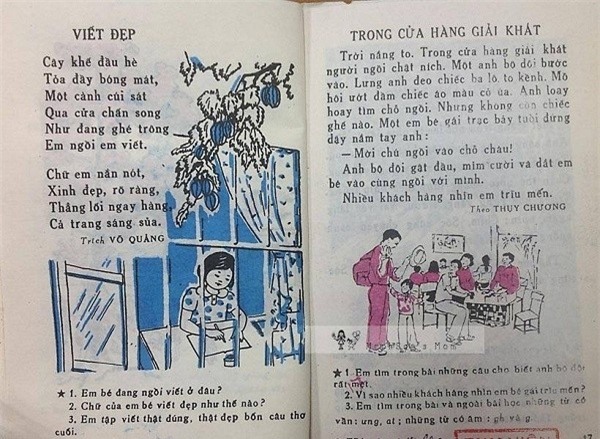 VIẾT ĐẸP
Cây khế đầu hè
Tỏa đầy bóng mát,
Một cành cúi sát
Qua cửa chấn song
Như đang ghé trông
Em ngồi em viết.
Chữ em nắn nót,
Xinh đẹp, rõ ràng,
Thẳng lối ngay hàng
Cả trang sáng sủa.
Trích VÕ QUẢNG
★ 1. Em bé đang ngồi viết ở đâu?
2. Chữ của em bé viết đẹp như thế nào?
3. Em tập viết thật đúng, thật đẹp bốn câu thơ
cuối.
TRONG CỬA HÀNG GIẢI KHÁT
Trời nắng to. Trong cửa hàng giải khát
người ngồi chật ních. Một anh bộ đội bước
vào. Lưng anh đeo chiếc ba lô to kềnh. Mồ
hôi ướt đầm chiếc áo màu cỏ úa. Anh loay
hoay tìm chỗ ngồi. Nhưng không còn chiếc
ghế nào. Một em bé gái trạc bảy tuổi đứng
dậy nắm tay anh:
— Mời chú ngồi vào chỗ cháu!
Anh bộ đội gật đầu, mỉm cười và dắt em
bé vào cùng ngồi với mình.
Nhiều khách hàng nhìn em trìu mến.
Theo THUY CHƯƠNG
Mom
★ 1. Em tìm trong bài những câu cho biết anh bộ đội
rất mệt.
2. Vì sao nhiều khách hàng nhìn em bé gái trìu mến?
3. Em tìm trong bài và ngoài bài học những từ có
vần: ưng, at; những từ có âm: gh và g.
17